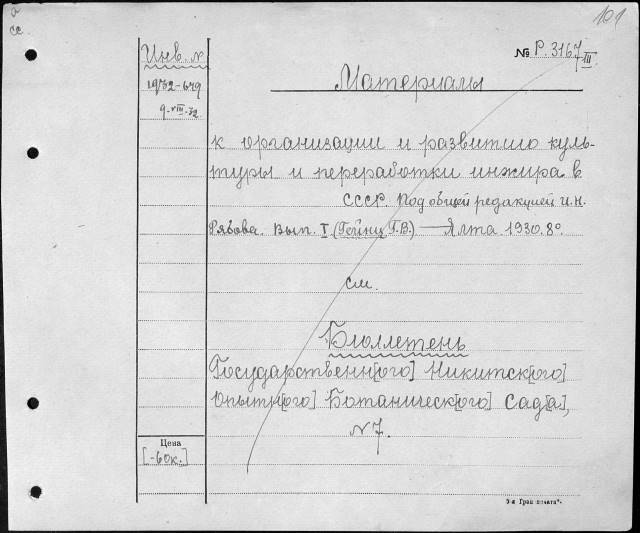 101
а
сс
Инв. №
1972-679
9-VIII-72
№ Р. 3167/III.
Материалы
к организации и развитию куль-
туры и переработки инжира в
СССР. Под общей редакцией И.Н.
Рябова. Вып. I (Гейнц Г.В.) — Ялта 1930. 8°.
см.
Бюллетень
Государственн[ого] Никитск[ого]
Опытн[ого] Ботаническ[ого] Сад[а],
№ 7.
Цена
[-60к.]
9-яГрад печати